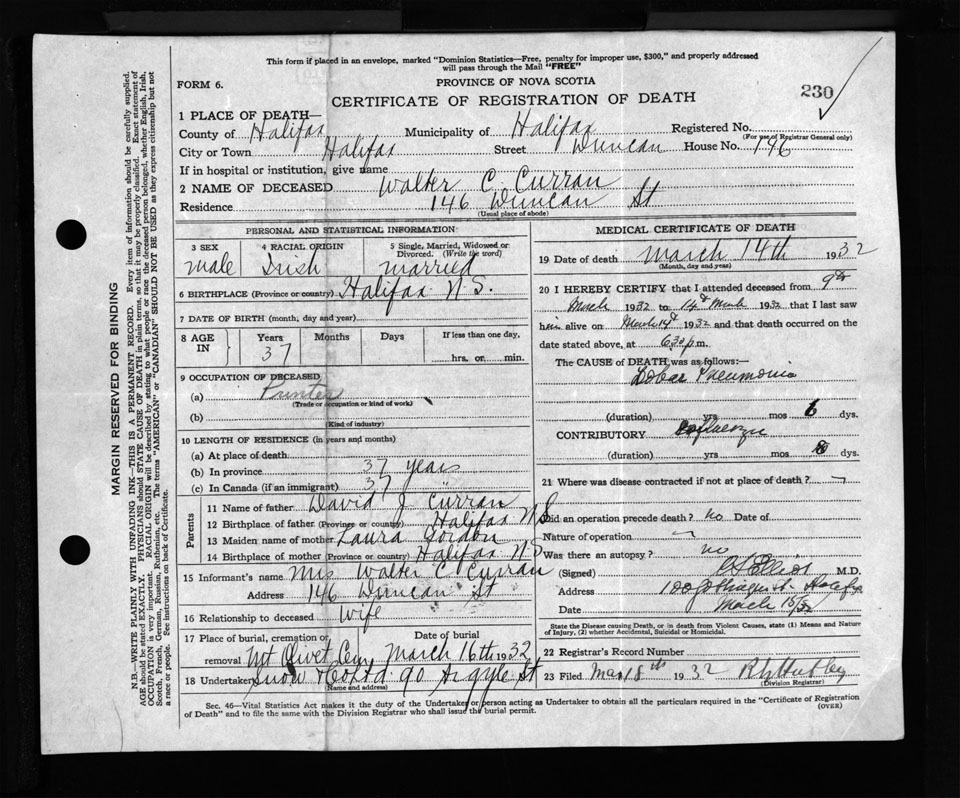 This form if placed in an envelope, marked "Dominion Statistics—Free, penalty for improper use, $300," and properly addressed
will pass through the Mail "FREE"
FORM 6.
PROVINCE OF NOVA SCOTIA
CERTIFICATE OF REGISTRATION OF DEATH
230
1 PLACE OF DEATH—
County of Halifax Municipality of Halifax Registered No.
(For use of Registrar General only)
City or Town Halifax Street Duncan House No. 146
If in hospital or institution, give name
2 NAME OF DECEASED Walter C. Curran
Residence 146 Duncan St
(Usual place of abode)
PERSONAL AND STATISTICAL INFORMATION
3 SEX 4 RACIAL ORIGIN 5 Single, Married, Widowed or
Divorced. (Write the word)
male Irish married
6 BIRTHPLACE (Province or country) Halifax N.S.
7 DATE OF BIRTH (month, day and year)
8 AGE IN Years Months Days If less than one day,
37 hrs. or min.
9 OCCUPATION OF DECEASED
(a) Printer
(Trade or occupation or kind of work)
(b)
(Kind of industry)
10 LENGTH OF RESIDENCE (in years and months)
(a) At place of death
(b) In province 37 years
(c) In Canada (if an immigrant) 37 "
Parents
11 Name of father David J Curran
12 Birthplace of father (Province or country) Halifax N S
13 Maiden name of mother Laura Gordon
14 Birthplace of mother (Province or country) Halifax N.S
15 Informant's name Mrs Walter C Curran
Address 146 Duncan St
16 Relationship to deceased Wife
17 Place of burial, cremation or removal Date of burial
Mt Olivet Cem March 16th 1932
18 Undertaker Snow & Co Ltd 90 Argyle St
(Name and address)
MEDICAL CERTIFICATE OF DEATH
19 Date of death March 14th 1932
(Month, day and year)
20 I HEREBY CERTIFY that I attended deceased from 9th
March 1932 to 14th March 1932 that I last saw
him alive on March 14 1932 and that death occurred on the
date stated above, at 6.30 p.m.
The CAUSE of DEATH was as follows:—
Lobar Pneumonia
(duration) yrs mos 6 dys.
CONTRIBUTORY Influenza
(duration) yrs mos dys.
21 Where was disease contracted if not at place of death?
Did an operation precede death? no Date of
Nature of operation
Was there an autopsy? no
(Signed) M.D.
Address Halifax
Date March 15/32
State the Disease causing Death, or in death from Violent Causes, state (1) Means and Nature
of Injury, (2) whether Accidental, Suicidal or Homicidal.
22 Registrar's Record Number
23 Filed Mar 18th 1932
(Division Registrar)
Sec. 46—Vital Statistics Act makes it the duty of the Undertaker or person acting as Undertaker to obtain all the particulars required in the "Certificate of Registration
of Death" and to file the same with the Division Registrar who shall issue the burial permit. (OVER)
MARGIN RESERVED FOR BINDING
N.B.—WRITE PLAINLY WITH UNFADING INK—THIS IS A PERMANENT RECORD. Every item of information should be carefully supplied.
AGE should be stated EXACTLY. PHYSICIANS should STATE CAUSE OF DEATH in plain terms, so that it may be properly classified. Exact statement of
OCCUPATION is very important. RACIAL ORIGIN will be described by stating to what people or race the deceased person belonged, whether English, Irish,
Scotch, French, German, Russian, Ruthenian, etc. The terms "AMERICAN" or "CANADIAN" SHOULD NOT BE USED as they express citizenship but not
a race or people. See instructions on back of Certificate.